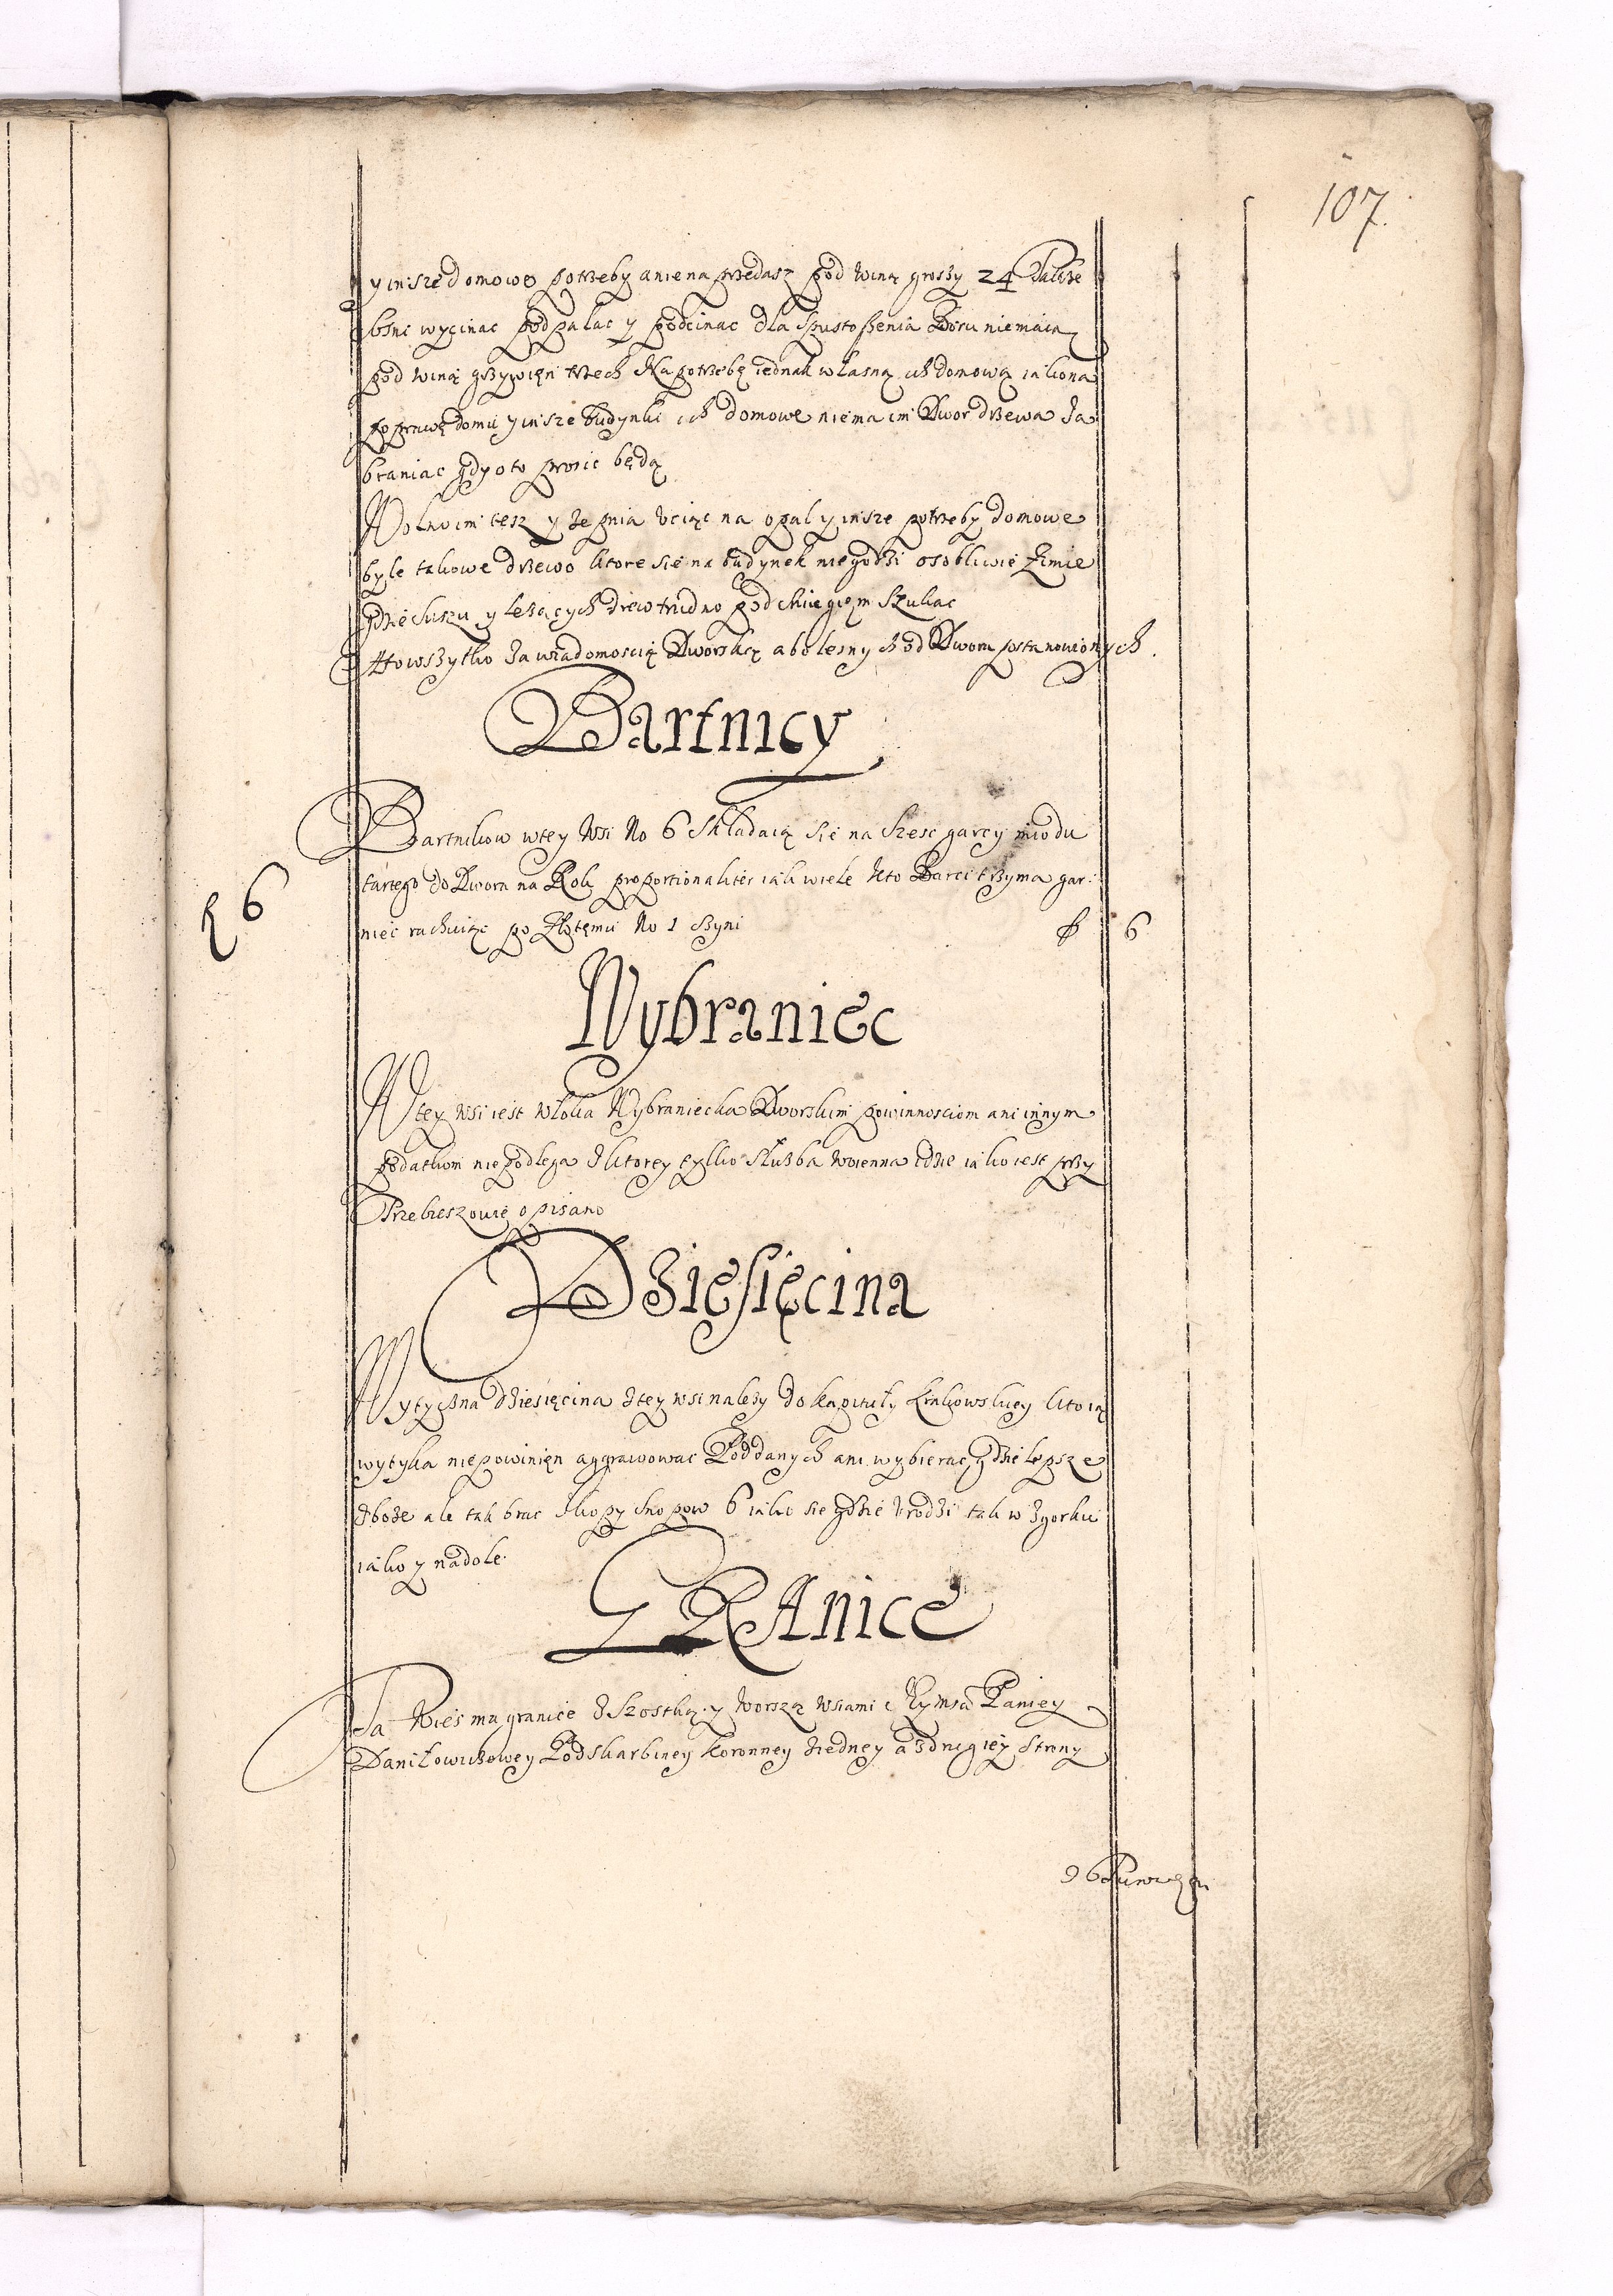 107.
y insze domowe potrzeby a nie na przedasz pod winą groszy 24 Takze
bśnc wycinac podpalac y podcinac dla spustoszenia Boru niemaią
pod winą grzywięn trzech Na potrzebę iednak własną ich domową iako na
poprawę domu y insze budynki ich domowe niema im Dwor drzewa Za
braniac gdy o to prosic będą
Wolno im tesz y Ze pnia vciąc na opal y insze potrzeby domowe
byle takowe drzewo ktore sie na budynek niegodzi osobliwie Zimie
gdzie suszu y lezących drew trudno pod sniegiem szukac
A to wszytko Za wiadomoscią Dworską abo lesnych od Dworu postanowionych.
Bartnicy
Bartnikow w tey Wsi No 6 Składaią sie na szesc garcy miodu
tartego do Dworu na Rok proportionaliter iak wiele kto Barci trzyma gar:
niec rachuiąc po Złotemu No 1 czyni f 6
f 6
Wybraniec
W tey Wsi iest włoka Wybraniecka Dworskim powinnosciom ani innym
podatkom niepodlega z ktorey tylko służba woienna idzie iako iest przy
Trzebieszowie opisano
Dziesięcina
Wytyczna dziesięcina z tey wsi nalezy do kapituły krakowskiey kto ią
wytyka niepowinięn aggrawowac Poddanych ani wybierac gdzie lepsze
zboże ale tak brac z kopy snopow 6 iako sie gdzie vrodzi tak w zgorku
iako y nadole.
GRAnice
Ta Wies ma granice z Szostką y Worszą Wsiami Jeymsci Paniey
Daniłowiczowey Podskarbiney koronney z iedney a z drugiey strony
96